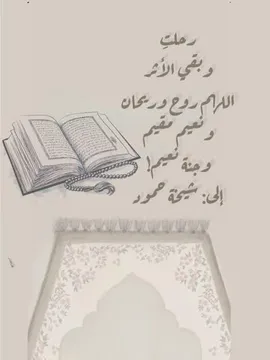 رحلتِ
وبقي الأثر
اللهم روح وريحان
ونعيم مقيم
وجنة نعيم!
إلى: شيخة حمود